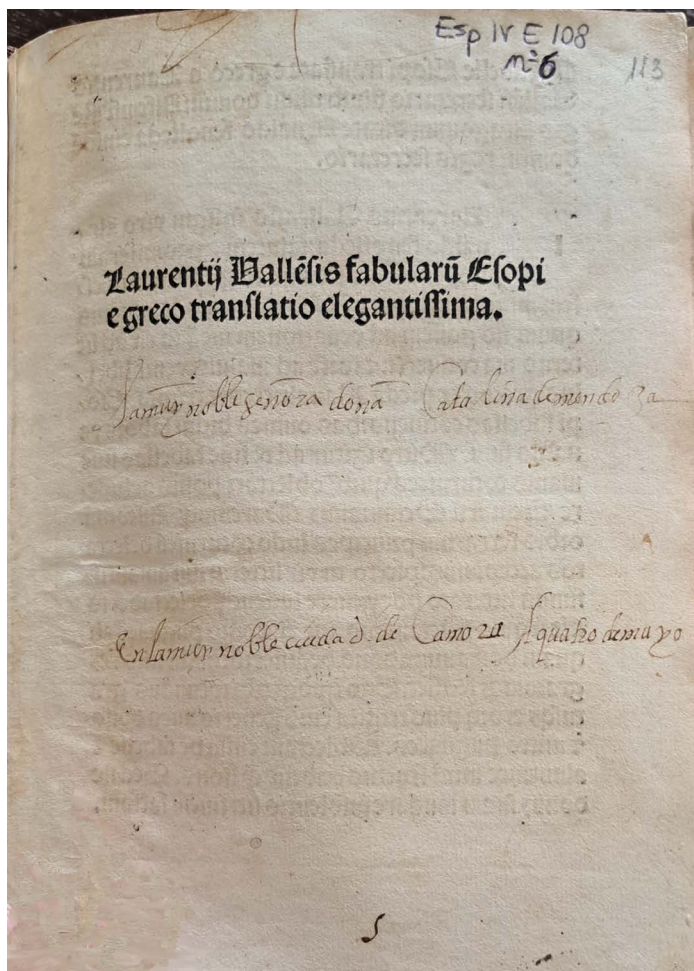 Esp IV E 108
nº 6
113
Laurentij Vallēsis fabularū Esopi
e greco translatio elegantissima.
lamuy noble señora doña Catalina de mendoza
En lamuy noble ciudad de Çamora A quatro de mayo